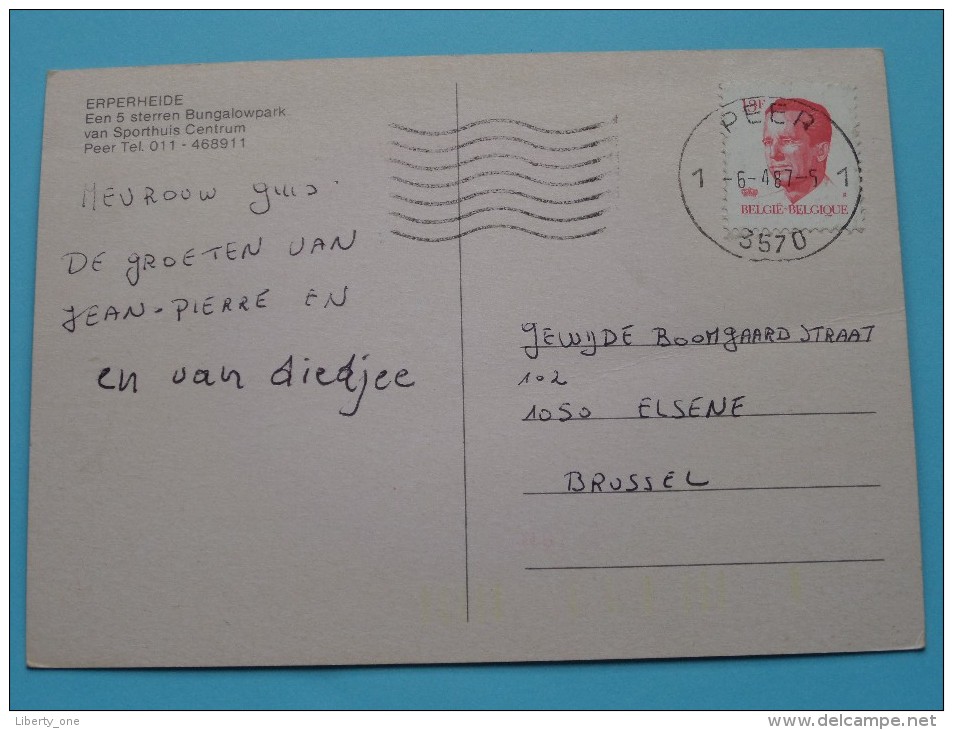 ERPERHEIDE
Een 5 sterren Bungalowpark
van Sporthuis Centrum
Peer Tel. 011 - 468911
MEVROUW
DE GROETEN VAN
JEAN-PIERRE EN
en van diedjee
PEER
1 -6-4 87-5 1
3570
BELGIË-BELGIQUE
GEWIJDE BOOMGAARD STRAAT
102
1050 ELSENE
BRUSSEL
Liberty_one
www.delcampe.net